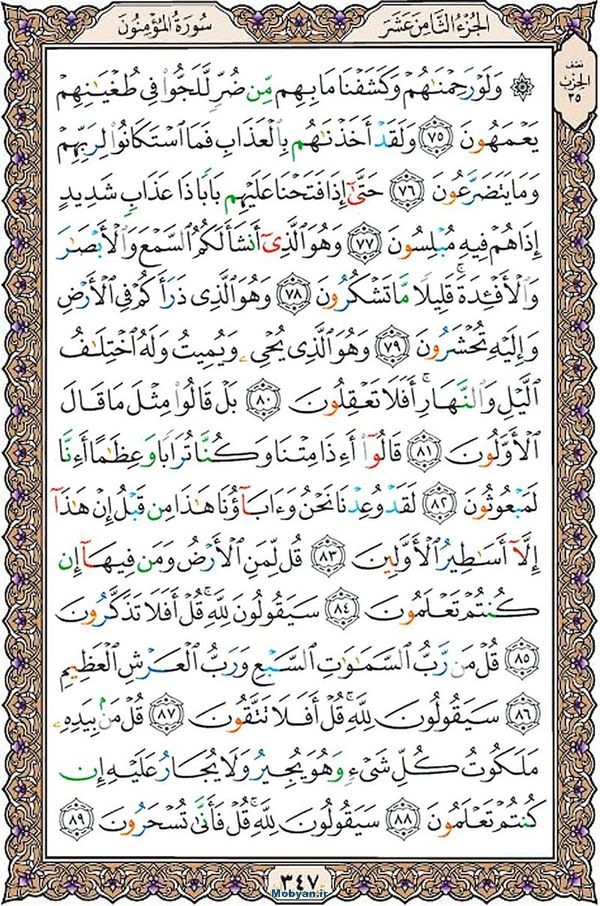 الجزء الثامن عشر
سورة المؤمنون
نصف
الحزب
٣٥
۞ وَلَوْ رَحِمْنَٰهُمْ وَكَشَفْنَا مَا بِهِم مِّن ضُرٍّ لَّلَجُّوا۟ فِى طُغْيَٰنِهِمْ
يَعْمَهُونَ ٧٥ وَلَقَدْ أَخَذْنَٰهُم بِٱلْعَذَابِ فَمَا ٱسْتَكَانُوا۟ لِرَبِّهِمْ
وَمَا يَتَضَرَّعُونَ ٧٦ حَتَّىٰٓ إِذَا فَتَحْنَا عَلَيْهِم بَابًا ذَا عَذَابٍ شَدِيدٍ
إِذَا هُمْ فِيهِ مُبْلِسُونَ ٧٧ وَهُوَ ٱلَّذِىٓ أَنشَأَ لَكُمُ ٱلسَّمْعَ وَٱلْأَبْصَٰرَ
وَٱلْأَفْـِٔدَةَ ۚ قَلِيلًا مَّا تَشْكُرُونَ ٧٨ وَهُوَ ٱلَّذِى ذَرَأَكُمْ فِى ٱلْأَرْضِ
وَإِلَيْهِ تُحْشَرُونَ ٧٩ وَهُوَ ٱلَّذِى يُحْىِۦ وَيُمِيتُ وَلَهُ ٱخْتِلَٰفُ
ٱلَّيْلِ وَٱلنَّهَارِ ۚ أَفَلَا تَعْقِلُونَ ٨٠ بَلْ قَالُوا۟ مِثْلَ مَا قَالَ
ٱلْأَوَّلُونَ ٨١ قَالُوٓا۟ أَءِذَا مِتْنَا وَكُنَّا تُرَابًا وَعِظَٰمًا أَءِنَّا
لَمَبْعُوثُونَ ٨٢ لَقَدْ وُعِدْنَا نَحْنُ وَءَابَآؤُنَا هَٰذَا مِن قَبْلُ إِنْ هَٰذَآ
إِلَّآ أَسَٰطِيرُ ٱلْأَوَّلِينَ ٨٣ قُل لِّمَنِ ٱلْأَرْضُ وَمَن فِيهَآ إِن
كُنتُمْ تَعْلَمُونَ ٨٤ سَيَقُولُونَ لِلَّهِ ۚ قُلْ أَفَلَا تَذَكَّرُونَ
٨٥ قُلْ مَن رَّبُّ ٱلسَّمَٰوَٰتِ ٱلسَّبْعِ وَرَبُّ ٱلْعَرْشِ ٱلْعَظِيمِ
٨٦ سَيَقُولُونَ لِلَّهِ ۚ قُلْ أَفَلَا تَتَّقُونَ ٨٧ قُلْ مَنۢ بِيَدِهِۦ
مَلَكُوتُ كُلِّ شَىْءٍ وَهُوَ يُجِيرُ وَلَا يُجَارُ عَلَيْهِ إِن
كُنتُمْ تَعْلَمُونَ ٨٨ سَيَقُولُونَ لِلَّهِ ۚ قُلْ فَأَنَّىٰ تُسْحَرُونَ ٨٩
٣٤٧
Mobyan.ir